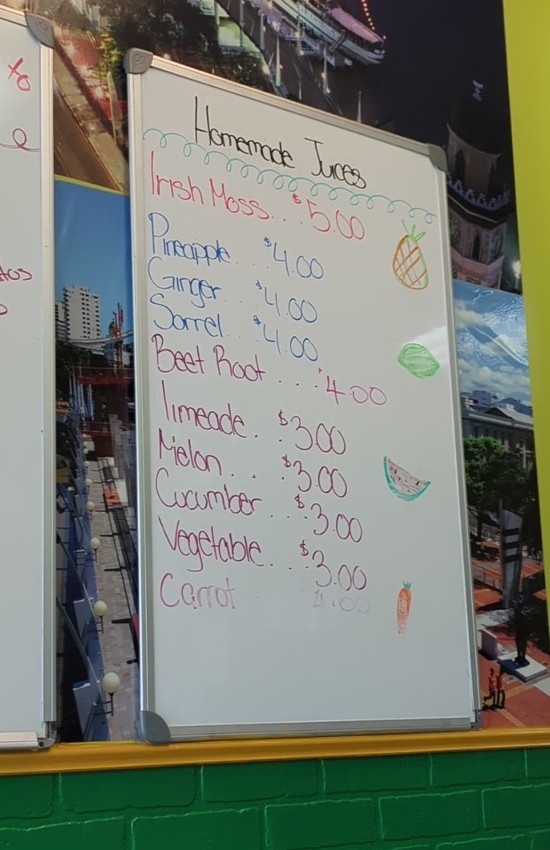 Homemade Juices
Irish Moss... $5.00
Pineapple... $4.00
Ginger... $4.00
Sorrel... $4.00
Beet Root .... $4.00
limeade.. $3.00
Melon.... $3.00
Cucumber... $3.00
Vegetable... $3.00
Carrot 4.00